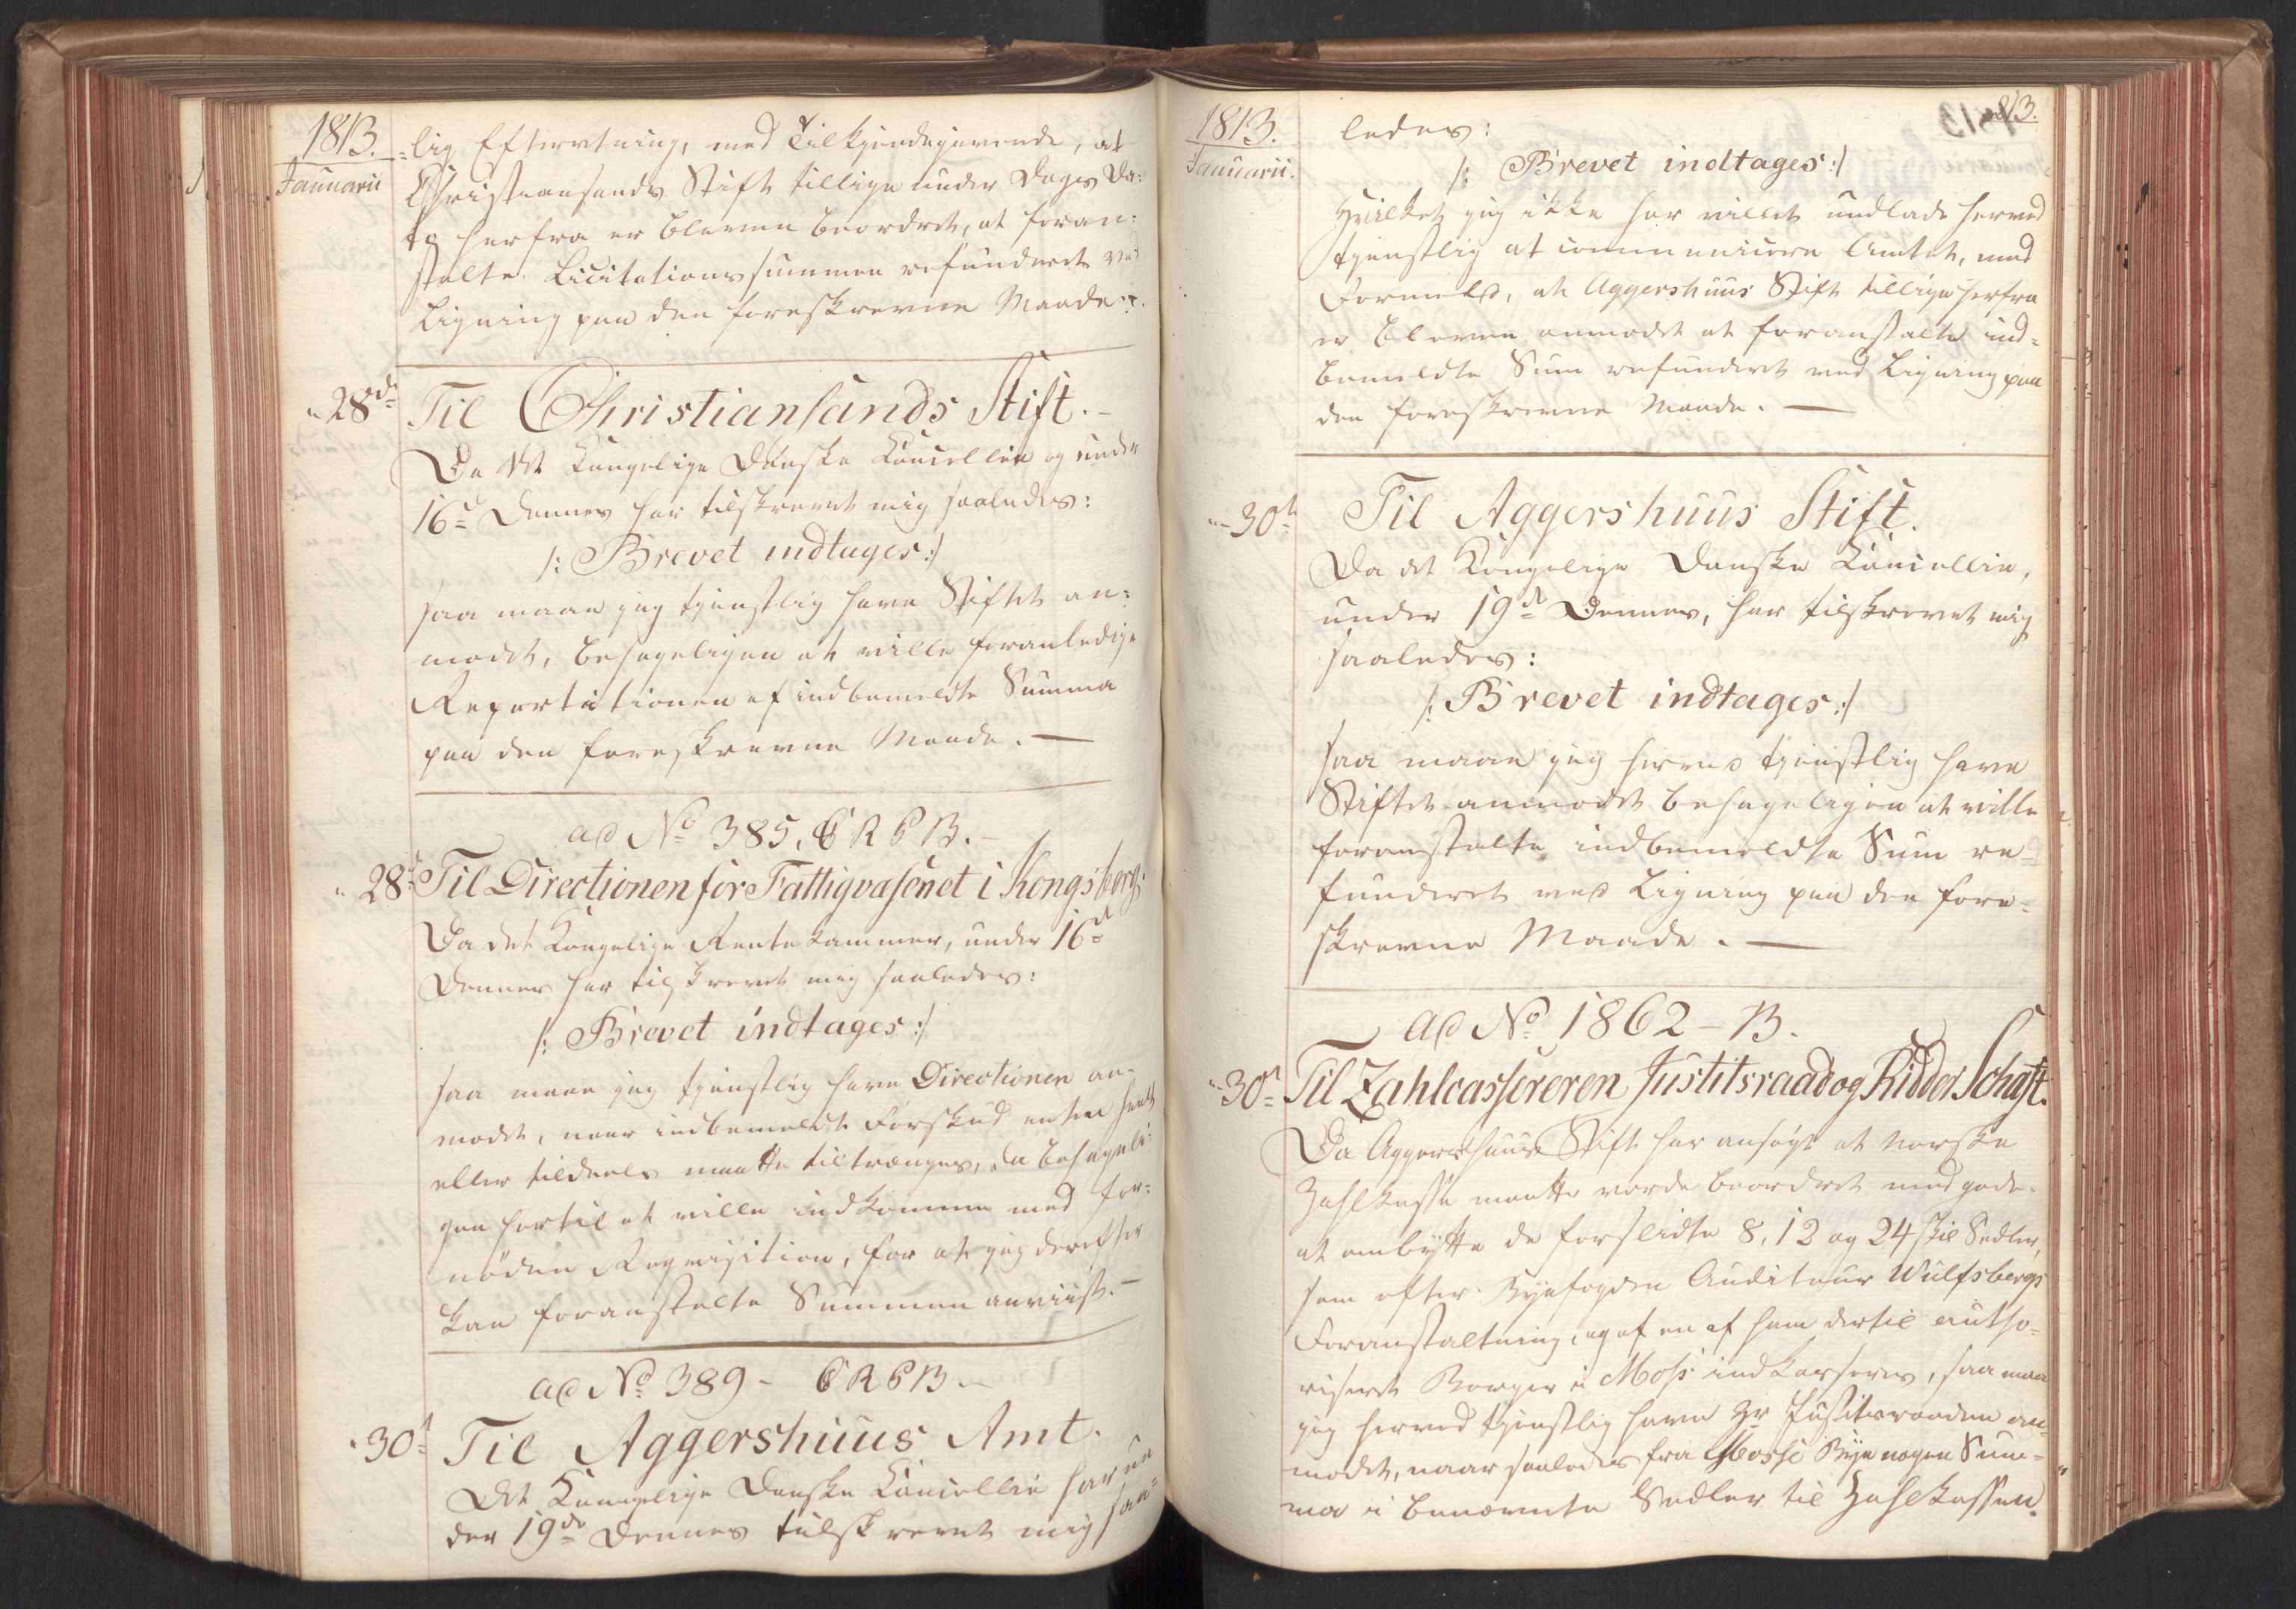 1813.
Januarii
-lig Efterretning, med Tilkjendegivende, at
Christiansands Stift tillige under Dags Da-
to herfra er bleven beordret, at foran-
stalte Licitationssummen refunderet ved
Ligning paa den foreskrevne Maade.
28de Til Christiansands Stift.
Da det Kongelige Danske Cancellie og under
16de Dennes har tilskrevet mig saaledes:
/: Brevet indtages :/
saa maae jeg tjenstlig have Stiftet an-
modet, behageligen at ville foranledige
Repartitionen af indbemeldte Summa
paa den foreskrevne Maade. —
ad No 385, C R P B.
28de Til Directionen for Fattigvæsenet i Kongsberg.
Da det Kongelige Rentekammer, under 16de
Dennes har tilskrevet mig saaledes:
/: Brevet indtages :/
saa maae jeg tjenstlig have Directionen an-
modet, naar indbemeldte Forskud enten heelt
eller tildeels maatte tiltrænges, da behageli-
gen hertil at ville indkomme med for-
nøden Requisition, for at jeg derefter
kan foranstalte Summen anviist. —
ad No 389 - C R P B.
30te Til Aggershuus Amt.
Det Kongelige Danske Cancellie har un-
der 19de Dennes tilskrevet mig saa-
1813.
Januarii.
813.
ledes:
/: Brevet indtages :/
Hvilket jeg ikke har villet undlade herved
tjenstlig at communicere Amtet, med
Formeld, at Aggershuus Stift tillige herfra
er bleven anmodet at foranstalte ind-
bemeldte Sum refunderet ved Ligning paa
den foreskrevne Maade. —
30te Til Aggershuus Stift.
Da det Kongelige Danske Cancellie,
under 19de Dennes, har tilskrevet mig
saaledes:
/: Brevet indtages :/
saa maae jeg herved tjenstlig have
Stiftet anmodet behageligen at ville
foranstalte indbemeldte Sum re-
funderet ved Ligning paa den fore-
skrevne Maade. —
ad No 1862 - B.
30te Til Zahlcassereren Justitsraad og Ridder Schaft.
Da Aggershuus Stift har ansøgt at Norske
Zahlkasse maatte vorde beordret med gode
at ombytte de forslidte 8, 12 og 24 skil Sedler,
som efter Byefogden Auditeur Wulfsbergs
Foranstaltning, og af en af ham dertil autho-
riseret Borger i Moss indkasseres, saa maa
jeg herved tjenstlig have Hr Justitsraaden an-
modet, naar saaledes fra Mosse Bye nogen Sum-
ma i benævnte Sedler til Zahlkassen